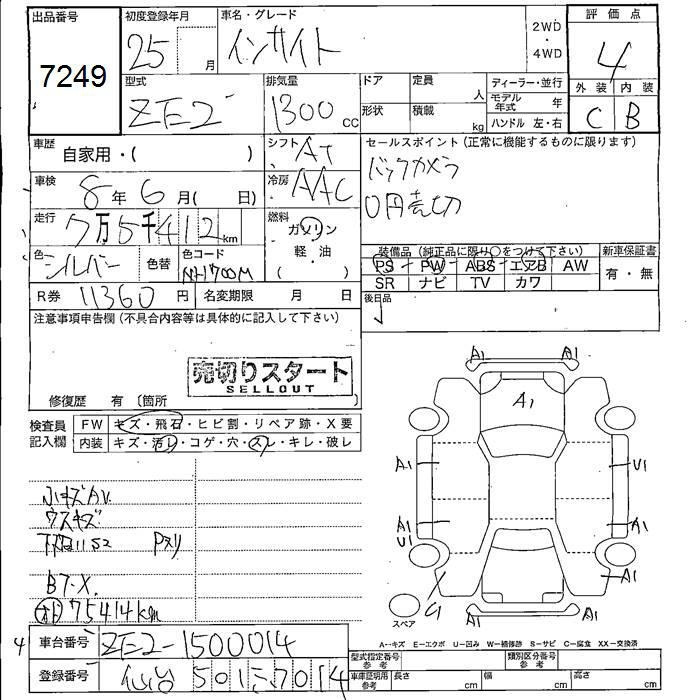 出品番号
7249
初度登録年月
25 月
車名・グレード
インサイト
2WD・4WD
評価点
4
外装 内装
C B
型式
ZE2
排気量
1300 CC
ドア
形状
定員 人
積載 kg
ディーラー・並行
モデル年式 年
ハンドル 左・右
車歴
自家用・( )
シフト
AT
車検
8年6月( 日)
冷房
AAC
走行
7万5千412km
燃料
ガソリン
軽・油
( )
色
シルバー
色替
色コード
NH700M
R券 11360円
名変期限 月 日
セールスポイント(正常に機能するものに限ります)
バックカメラ
0円売切
装備品(純正品に限り○をつけて下さい)
PS PW ABS エアB AW
SR ナビ TV カワ
新車保証書
有・無
後日品
注意事項申告欄(不具合内容等は具体的に記入して下さい)
売切りスタート
SELLOUT
修復歴 有 〔箇所
検査員記入欄
FW キズ・飛石・ヒビ割・リペア跡・X要
内装 キズ・汚レ・コゲ・穴・スレ・キレ・破レ
小キズAU.
ウスキズ
Pスリ
B7-X.
75414km
A1 A1
A1
A1 U1
A1 U1 A1
A1
スペア
A‥キズ E‥エクボ U‥凹み W‥補修跡 S‥サビ C‥腐食 XX‥交換済
4
車台番号 ZE2-1500014
登録番号 仙台 501 7014
型式指定番号 参考
類別区分番号 参考
車庫証明用 参考 長さ cm 幅 cm 高さ cm